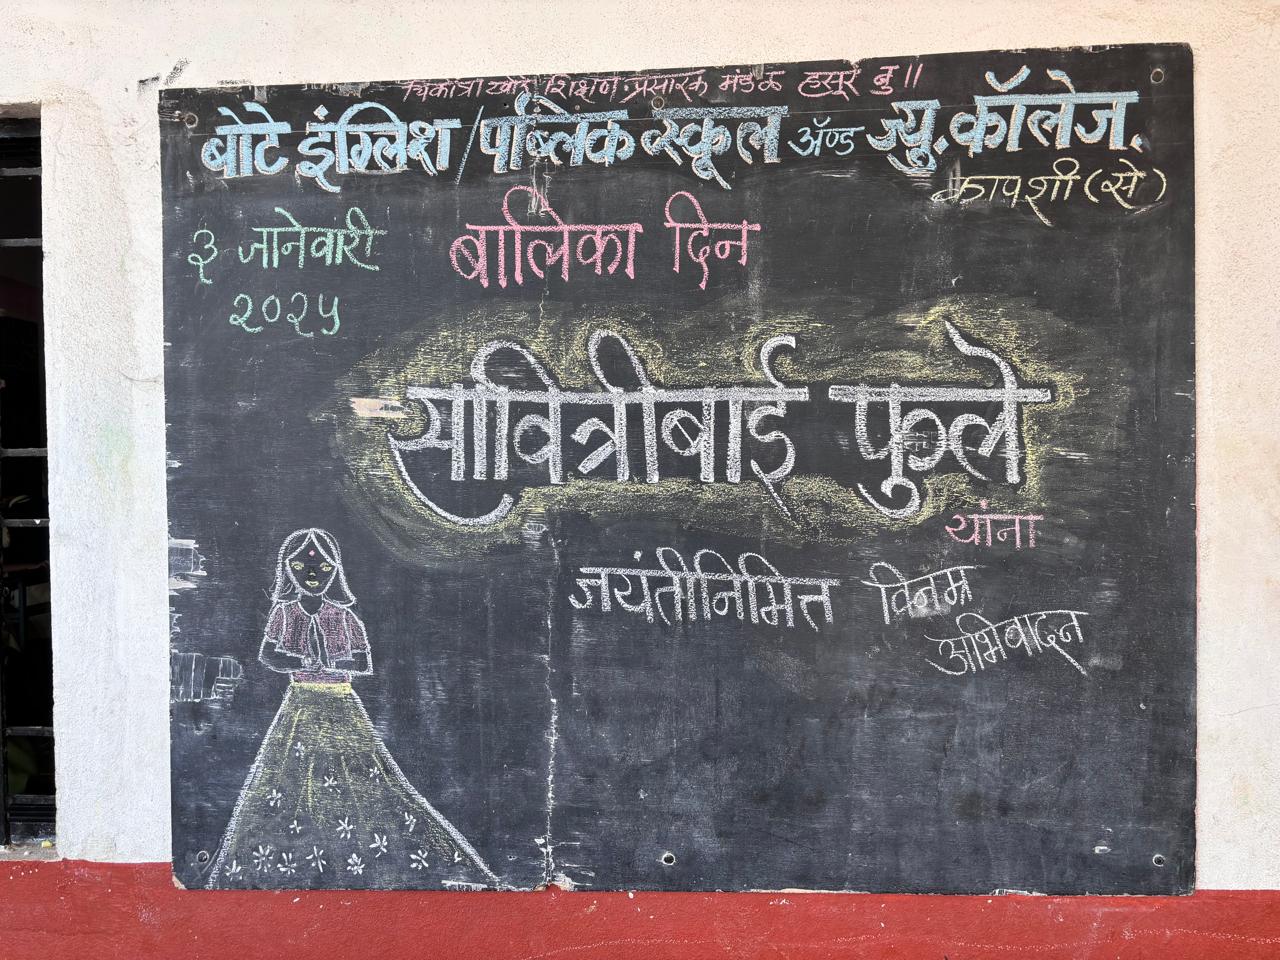 चिकोत्रा खोरे शिक्षण प्रसारक मंडळ हसूर बु॥
बोटे इंग्लिश/पब्लिक स्कूल ॲण्ड ज्यु. कॉलेज.
कापशी (से)
३ जानेवारी
२०२५
बालिका दिन
सावित्रीबाई फुले
यांना
जयंतीनिमित्त विनम्र
अभिवादन